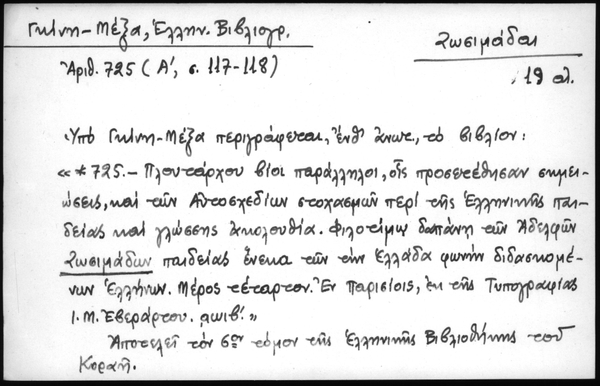 Γκίνη-Μέξα, Ἑλλην. Βιβλιογρ.
Ζωσιμάδαι
Ἀριθ. 725 (Α΄, σ. 117-118)
, 19 αἰ.
Ὑπὸ Γκίνη-Μέξα περιγράφεται, ἔνθ' ἄνωτ., τὸ βιβλίον:
«*725.- Πλουτάρχου βίοι παράλληλοι, οἷς προσετέθησαν σημει-
ώσεις, καὶ τῶν Αὐτοσχεδίων στοχασμῶν περὶ τῆς Ἑλληνικῆς παι-
δείας καὶ γλώσσης ἀκολουθία. Φιλοτίμῳ δαπάνῃ τῶν Ἀδελφῶν
Ζωσιμάδων παιδείας ἕνεκα τῶν τὴν Ἑλλάδα φωνὴν διδασκομέ-
νων Ἑλλήνων. Μέρος τέταρτον. Ἐν Παρισίοις, ἐκ τῆς Τυπογραφίας
Ι. Μ. Ἐβεράρτου. ͵αωιβ΄.»
Ἀποτελεῖ τὸν 6ον τόμον τῆς Ἑλληνικῆς Βιβλιοθήκης τοῦ
Κοραῆ.